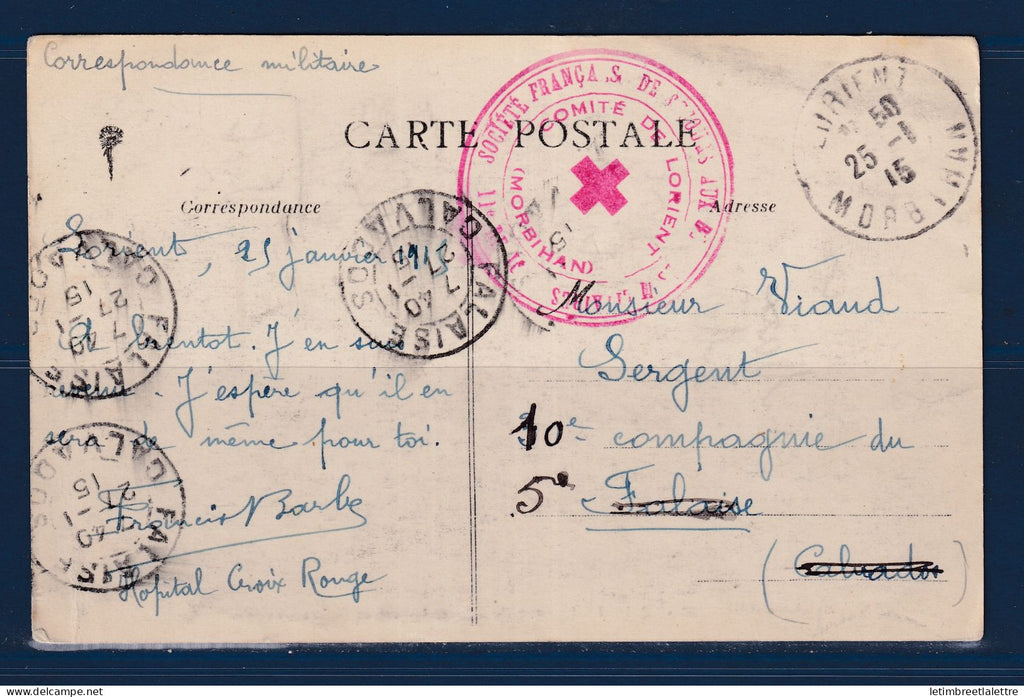 Correspondance militaire
CARTE POSTALE
Correspondance
Adresse
SOCIÉTÉ FRANÇA S. DE SECOURS AUX B.
COMITÉ DE LORIENT
(MORBIHAN)
LORIENT
50
25 -1
15
MORB
FALAISE
CALVADOS
7 40
27 -1
15
FALAISE
CALVADOS
7 40
27 -1
15
FALAISE
CALVADOS
40
-1
15
Lorient, 25 janvier 1915
A bientot. J'en suis
J'espère qu'il en
sera de même pour toi.
Francis Barbe
Hopital Croix Rouge
Monsieur Viaud
Sergent
10e compagnie du
5e Falaise
(Calvados)
letimbreetlalettre.com